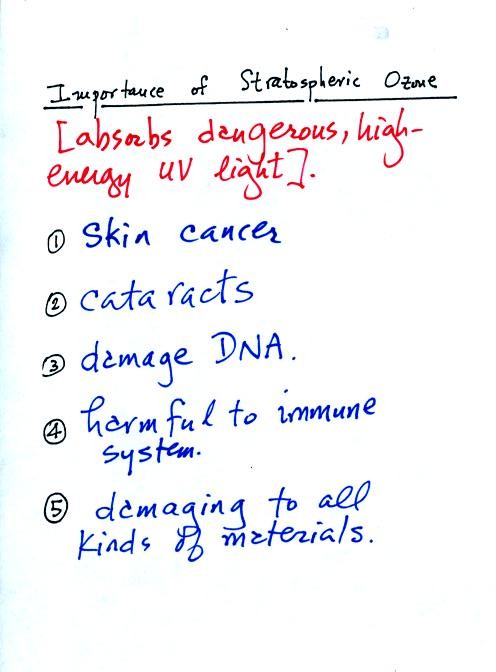 Importance of Stratospheric Ozone
[absorbs dangerous, high-
energy UV light].
① Skin cancer
② cataracts
③ damage DNA.
④ harmful to immune
system.
⑤ damaging to all
kinds of materials.